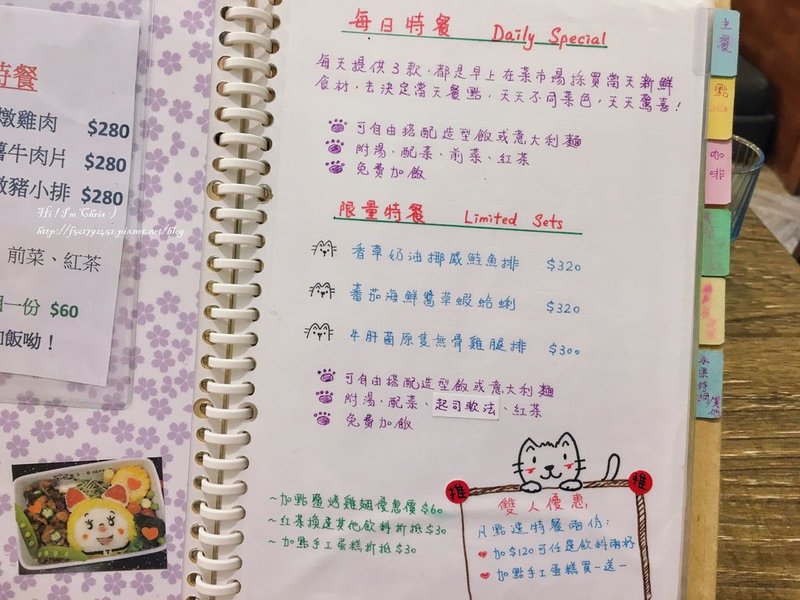 特餐
燉雞肉 $280
牛肉片 $280
豬小排 $280
Hi ! I'm Chris :)
http://f501792452.pixnet.net/blog
前菜、紅茶
一份 $60
加飯呦！
每日特餐 Daily Special
每天提供3款，都是早上在菜市場採買當天新鮮
食材，去決定當天餐點，天天不同菜色，天天驚喜！
可自由搭配造型飯或意大利麵
附湯、配菜、前菜、紅茶
免費加飯
限量特餐 Limited Sets
香草奶油挪威鮭魚排 $320
蕃茄海鮮醬草蝦蛤蜊 $320
牛肝菌原隻無骨雞腿排 $300
可自由搭配造型飯或意大利麵
附湯、配菜、起司軟法、紅茶
免費加飯
~加點鹽烤雞翅優惠價$60
~紅茶換是其他飲料折抵$30
~加點手工蛋糕折抵$30
推 推
雙人優惠,
凡點選特餐兩份:
加$120可任選飲料兩杯
加點手工蛋糕買一送一
主餐
點心
咖啡